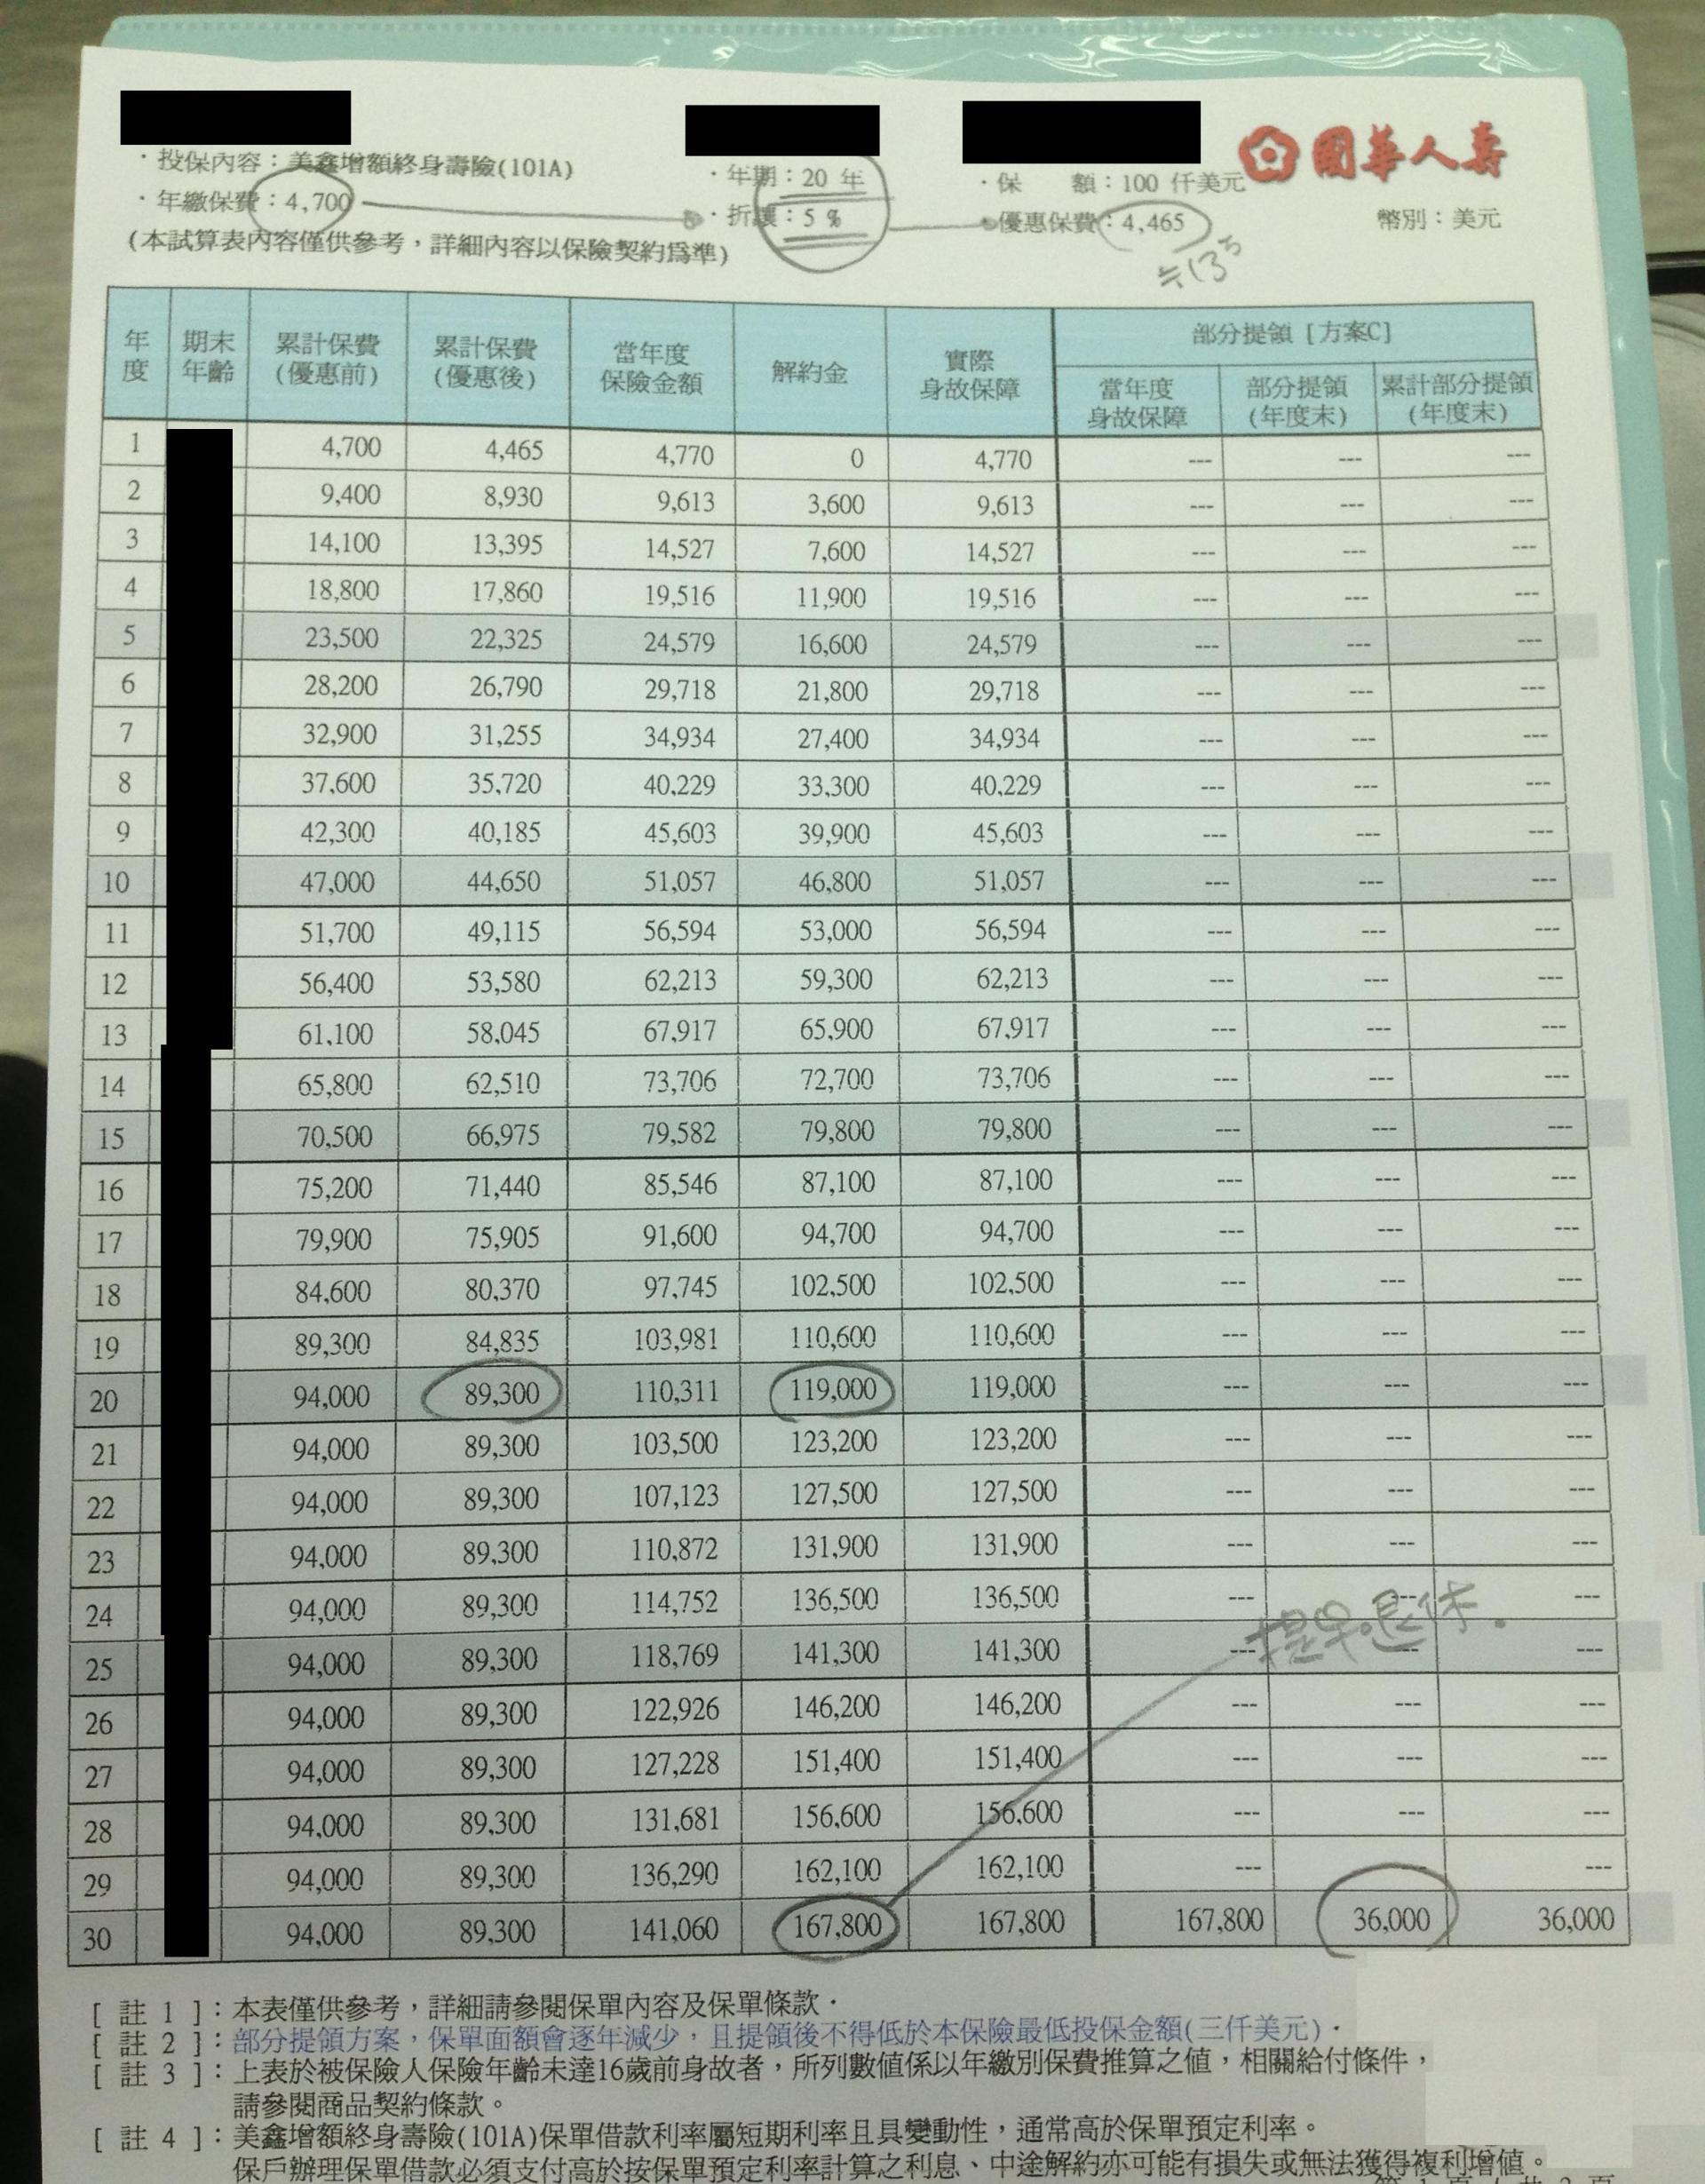 ・投保內容：美鑫增額終身壽險(101A) ・年期：20 年 ・保 額：100 仟美元 國華人壽
・年繳保費：4,700 ・折讓：5 % ・優惠保費：4,465 幣別：美元
(本試算表內容僅供參考，詳細內容以保險契約為準)
年度 期末年齡 累計保費(優惠前) 累計保費(優惠後) 當年度保險金額 解約金 實際身故保障 部分提領 [方案C]
當年度身故保障 部分提領(年度末) 累計部分提領(年度末)
1 4,700 4,465 4,770 0 4,770 --- --- ---
2 9,400 8,930 9,613 3,600 9,613 --- --- ---
3 14,100 13,395 14,527 7,600 14,527 --- --- ---
4 18,800 17,860 19,516 11,900 19,516 --- --- ---
5 23,500 22,325 24,579 16,600 24,579 --- --- ---
6 28,200 26,790 29,718 21,800 29,718 --- --- ---
7 32,900 31,255 34,934 27,400 34,934 --- --- ---
8 37,600 35,720 40,229 33,300 40,229 --- --- ---
9 42,300 40,185 45,603 39,900 45,603 --- --- ---
10 47,000 44,650 51,057 46,800 51,057 --- --- ---
11 51,700 49,115 56,594 53,000 56,594 --- --- ---
12 56,400 53,580 62,213 59,300 62,213 --- --- ---
13 61,100 58,045 67,917 65,900 67,917 --- --- ---
14 65,800 62,510 73,706 72,700 73,706 --- --- ---
15 70,500 66,975 79,582 79,800 79,800 --- --- ---
16 75,200 71,440 85,546 87,100 87,100 --- --- ---
17 79,900 75,905 91,600 94,700 94,700 --- --- ---
18 84,600 80,370 97,745 102,500 102,500 --- --- ---
19 89,300 84,835 103,981 110,600 110,600 --- --- ---
20 94,000 89,300 110,311 119,000 119,000 --- --- ---
21 94,000 89,300 103,500 123,200 123,200 --- --- ---
22 94,000 89,300 107,123 127,500 127,500 --- --- ---
23 94,000 89,300 110,872 131,900 131,900 --- --- ---
24 94,000 89,300 114,752 136,500 136,500 --- --- ---
提早退休.
25 94,000 89,300 118,769 141,300 141,300 --- --- ---
26 94,000 89,300 122,926 146,200 146,200 --- --- ---
27 94,000 89,300 127,228 151,400 151,400 --- --- ---
28 94,000 89,300 131,681 156,600 156,600 --- --- ---
29 94,000 89,300 136,290 162,100 162,100 --- --- ---
30 94,000 89,300 141,060 167,800 167,800 167,800 36,000 36,000
[ 註 1 ]：本表僅供參考，詳細請參閱保單內容及保單條款．
[ 註 2 ]：部分提領方案，保單面額會逐年減少，且提領後不得低於本保險最低投保金額(三仟美元)．
[ 註 3 ]：上表於被保險人保險年齡未達16歲前身故者，所列數值係以年繳別保費推算之值，相關給付條件，
請參閱商品契約條款。
[ 註 4 ]：美鑫增額終身壽險(101A)保單借款利率屬短期利率且具變動性，通常高於保單預定利率。
保戶辦理保單借款必須支付高於按保單預定利率計算之利息、中途解約亦可能有損失或無法獲得複利增值。